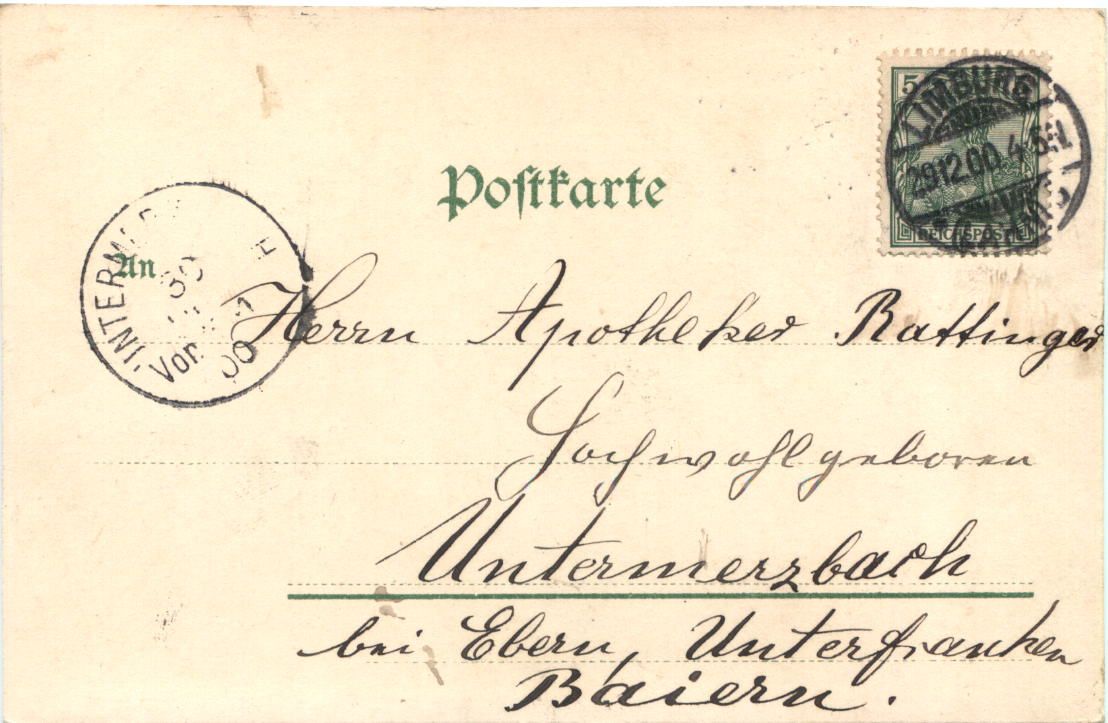 Postkarte
5
LIMBURG
29.12.00. 4-5N.
REICHSPOST
An
UNTERMERZBACH
30
Vor
00
Herrn Apotheker Rattinger
Hochwohlgeboren
Untermerzbach
bei Ebern, Unterfranken
Baiern.